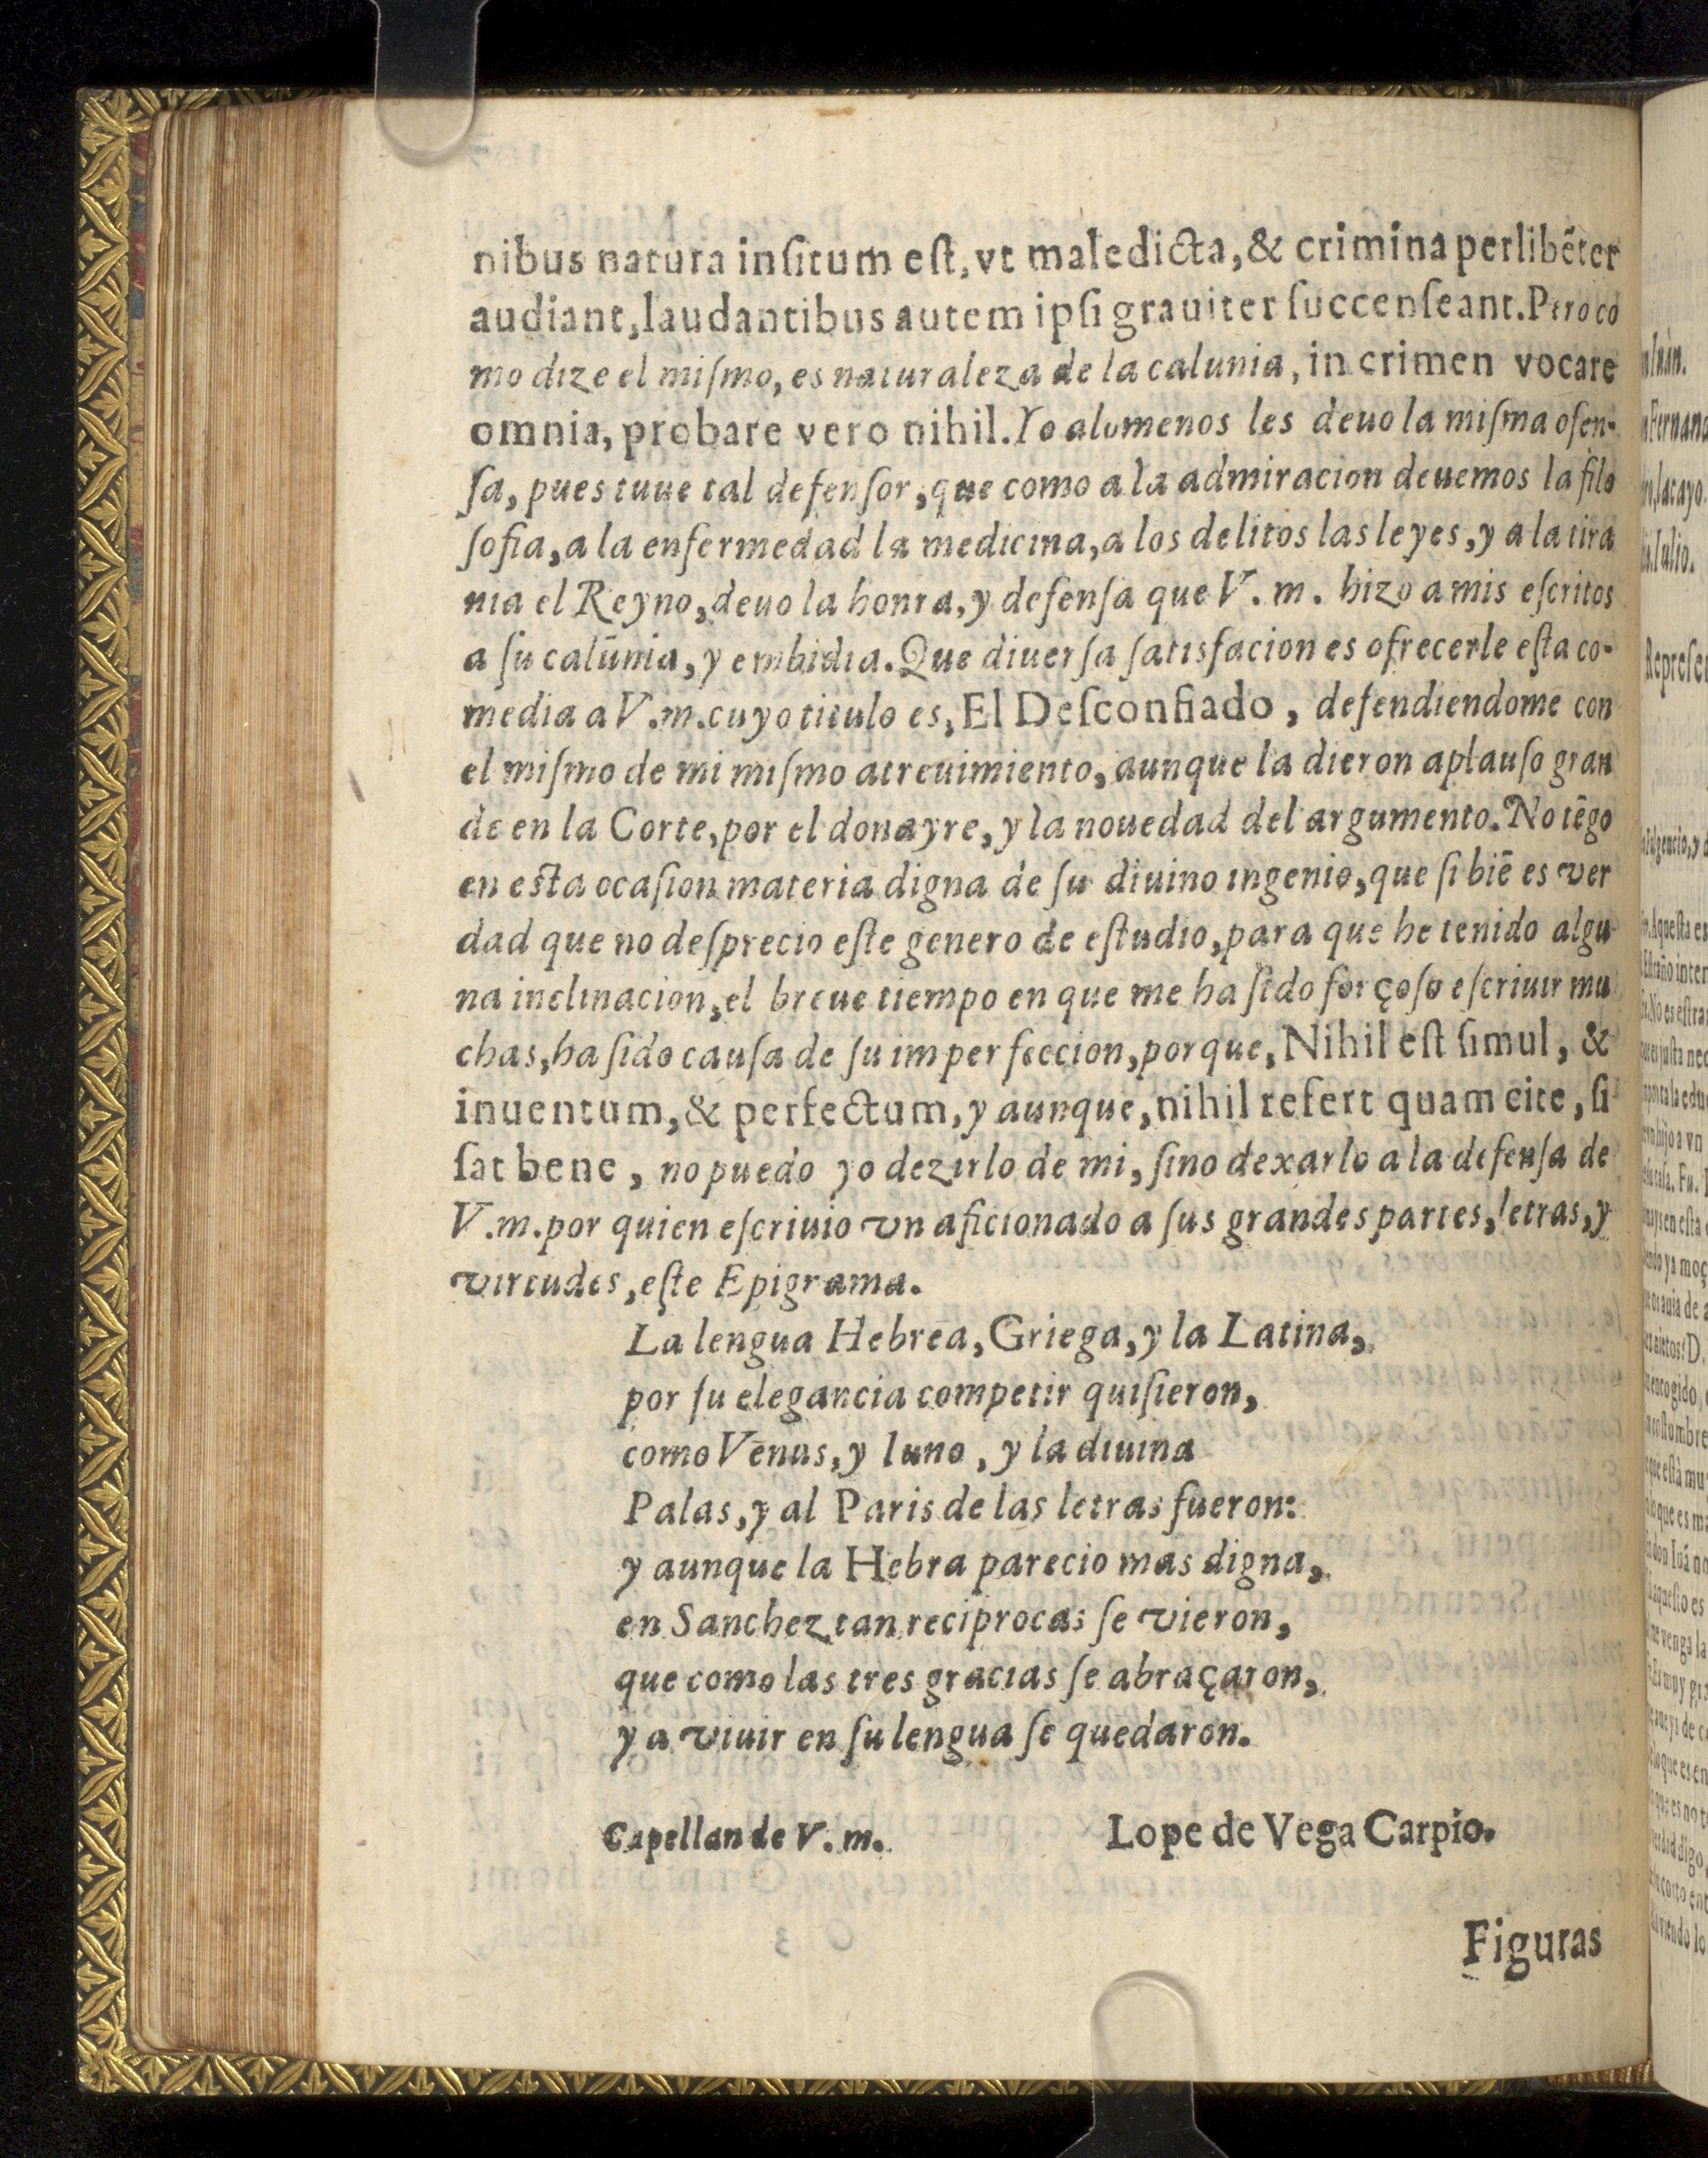 nibus natura inſitum eſt, vt maledicta, & crimina perlibẽter
audiant, laudantibus autem ipſi grauiter ſuccenſeant. Pero co
mo dize el miſmo, es naturaleza de la calunia, in crimen vocare
omnia, probare vero nihil. Yo alomenos les deuo la miſma ofen-
ſa, pues tuue tal defenſor, que como a la admiracion deuemos la filo
ſofia, a la enfermedad la medicina, a los delitos las leyes, y a la tira
nia el Reyno, deuo la honra, y defenſa que V. m. hizo a mis eſcritos
a ſu calũnia, y embidia. Que diuerſa ſatisfacion es ofrecerle eſta co-
media a V.m. cuyo titulo es, El Deſconfiado, defendiendome con
el miſmo de mi miſmo atreuimiento, aunque la dieron aplauſo gran
de en la Corte, por el donayre, y la nouedad del argumento. No tẽgo
en eſta ocaſion materia digna de ſu diuino ingenio, que ſi biẽ es ver
dad que no deſprecio eſte genero de eſtudio, para que he tenido algu
na inclinacion, el breue tiempo en que me ha ſido forçoſo eſcriuir mu
chas, ha ſido cauſa de ſu imperfeccion, porque, Nihil eſt ſimul, &
inuentum, & perfectum, y aunque, nihil refert quam cito, ſi
ſat bene, no puedo yo dezirlo de mi, ſino dexarlo a la defenſa de
V.m. por quien eſcriuio vn aficionado a ſus grandes partes, letras, y
virtudes, eſte Epigrama.
La lengua Hebrea, Griega, y la Latina,
por ſu elegancia competir quiſieron,
como Venus, y Iuno, y la diuina
Palas, y al Paris de las letras fueron:
y aunque la Hebra parecio mas digna,
en Sanchez tan reciprocas ſe vieron,
que como las tres gracias ſe abraçaron,
y a viuir en ſu lengua ſe quedaron.
Capellan de V. m. Lope de Vega Carpio.
Figuras